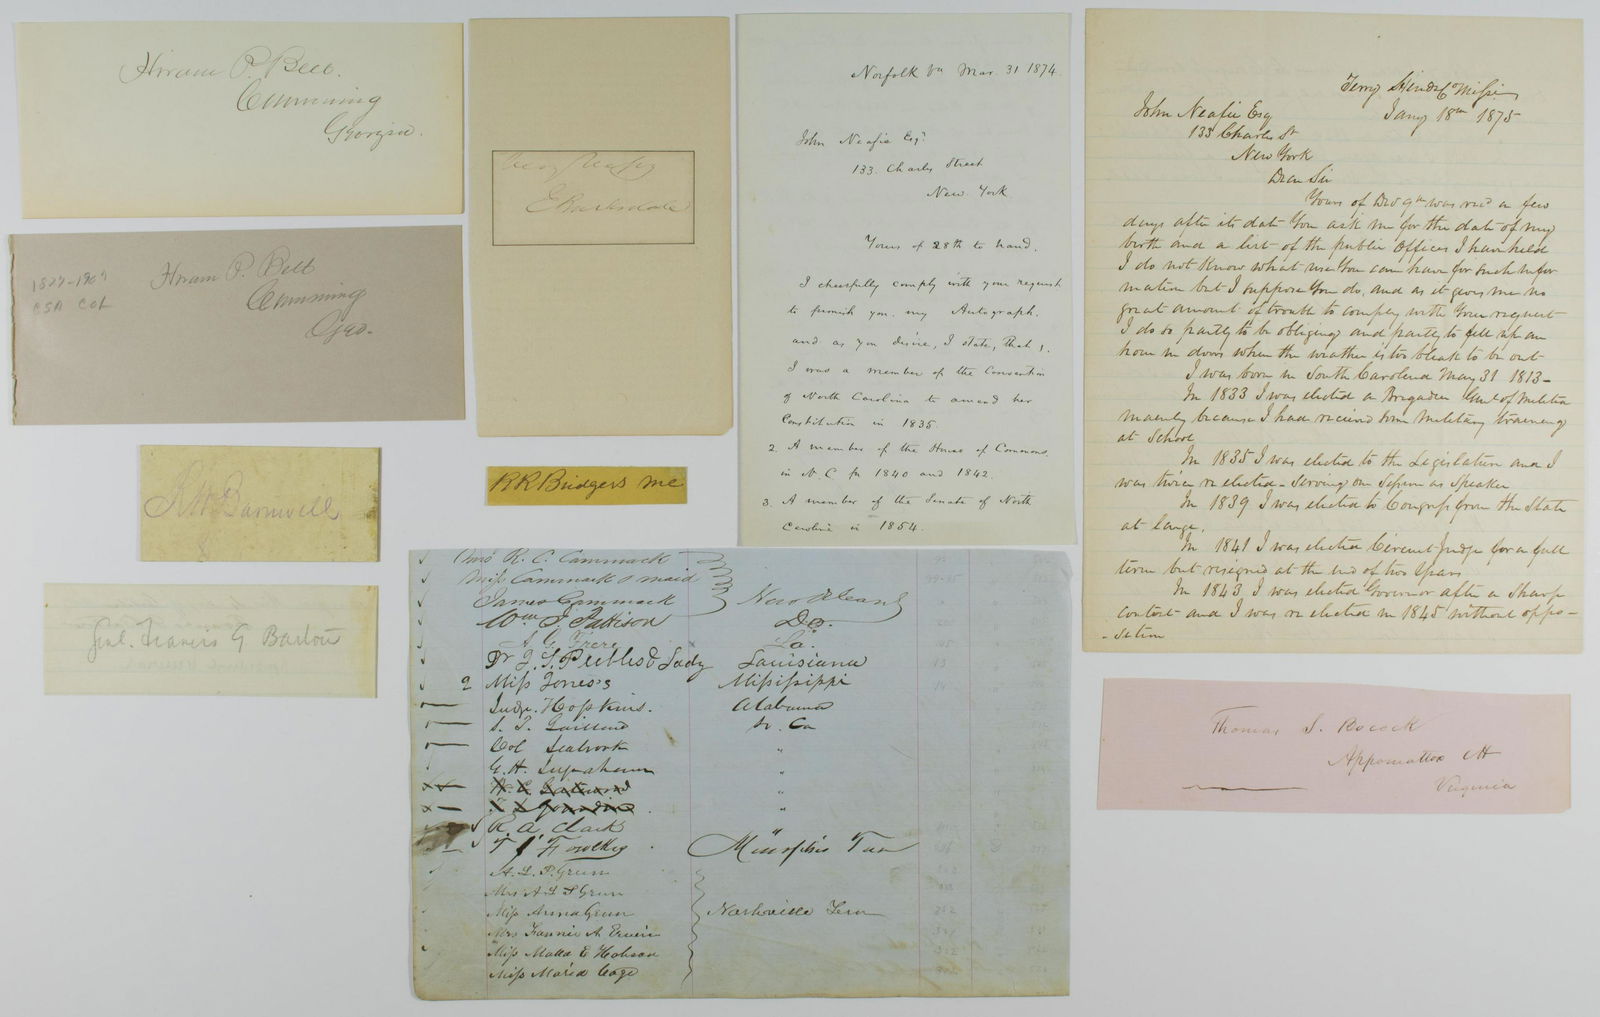 Hiram P. Bell.
Cumming
Georgia.
1827-1907
CSA Col
Hiram P. Bell
Cumming
Geo.
R W Barnwell
Genl. Francis S Bartow
Very Truly
E Barksdale
R R Bridgers MC
Norfolk Va Mar. 31 1874.
John Neafie Esqr
133. Charles Street
New York
Yours of 28th to hand.
I cheerfully comply with your request
to furnish you my Autograph.
and as you desire, I state, that 1.
I was a member of the Convention
of North Carolina to amend her
Constitution in 1835.
2. A member of the House of Commons
in N. C. for 1840 and 1842.
3. A member of the Senate of North
Carolina in 1854.
Terry Hinds Co Missi
Jany 18th 1875
John Neafie Esq
133 Charles St
New York
Dear Sir
Yours of Dec 9th was recd a few
days after its date You ask me for the date of my
birth and a list of the public offices I have held
I do not know what use You can have for such infor
mation but I suppose You do, and as it gives me no
great amount of trouble to comply with Your request
I do so partly to be obliging and partly to fill up an
hour in doors when the weather is too bleak to be out
I was born in South Carolina May 31 1813-
In 1833 I was elected a Brigadier Genl of Militia
mainly because I had received some military training
at School
In 1835 I was elected to the Legislature and I
was twice re elected - serving one Session as Speaker
In 1839 I was elected to Congress from the State
at large.
In 1841 I was elected Circuit Judge for a full
term but resigned at the end of two Years
In 1843 I was elected Governor after a Sharp
contest and I was re elected in 1845 without oppo-
-sition
R. C. Cammack
Miss Cammack & maid
James Cammack New Orleans
Wm J. Pattison Do.
La.
Dr Peebles & Lady Louisiana
2 Miss Jones's Mississippi
Judge Hopkins. Alabama
S. P. Gaillard So. Ca
Col Seabrook "
G. H. Ingraham "
"
"
R. A. Clark "
Fowlkes Memphis Ten
A. L. P. Green
Mrs A L P Green
Miss Anna Green Nashville Tenn
Mrs Fannie A Erwin
Miss Matta E Hobson
Miss Maria Cage
Thomas S. Bocock
Appomattox CH
Virginia